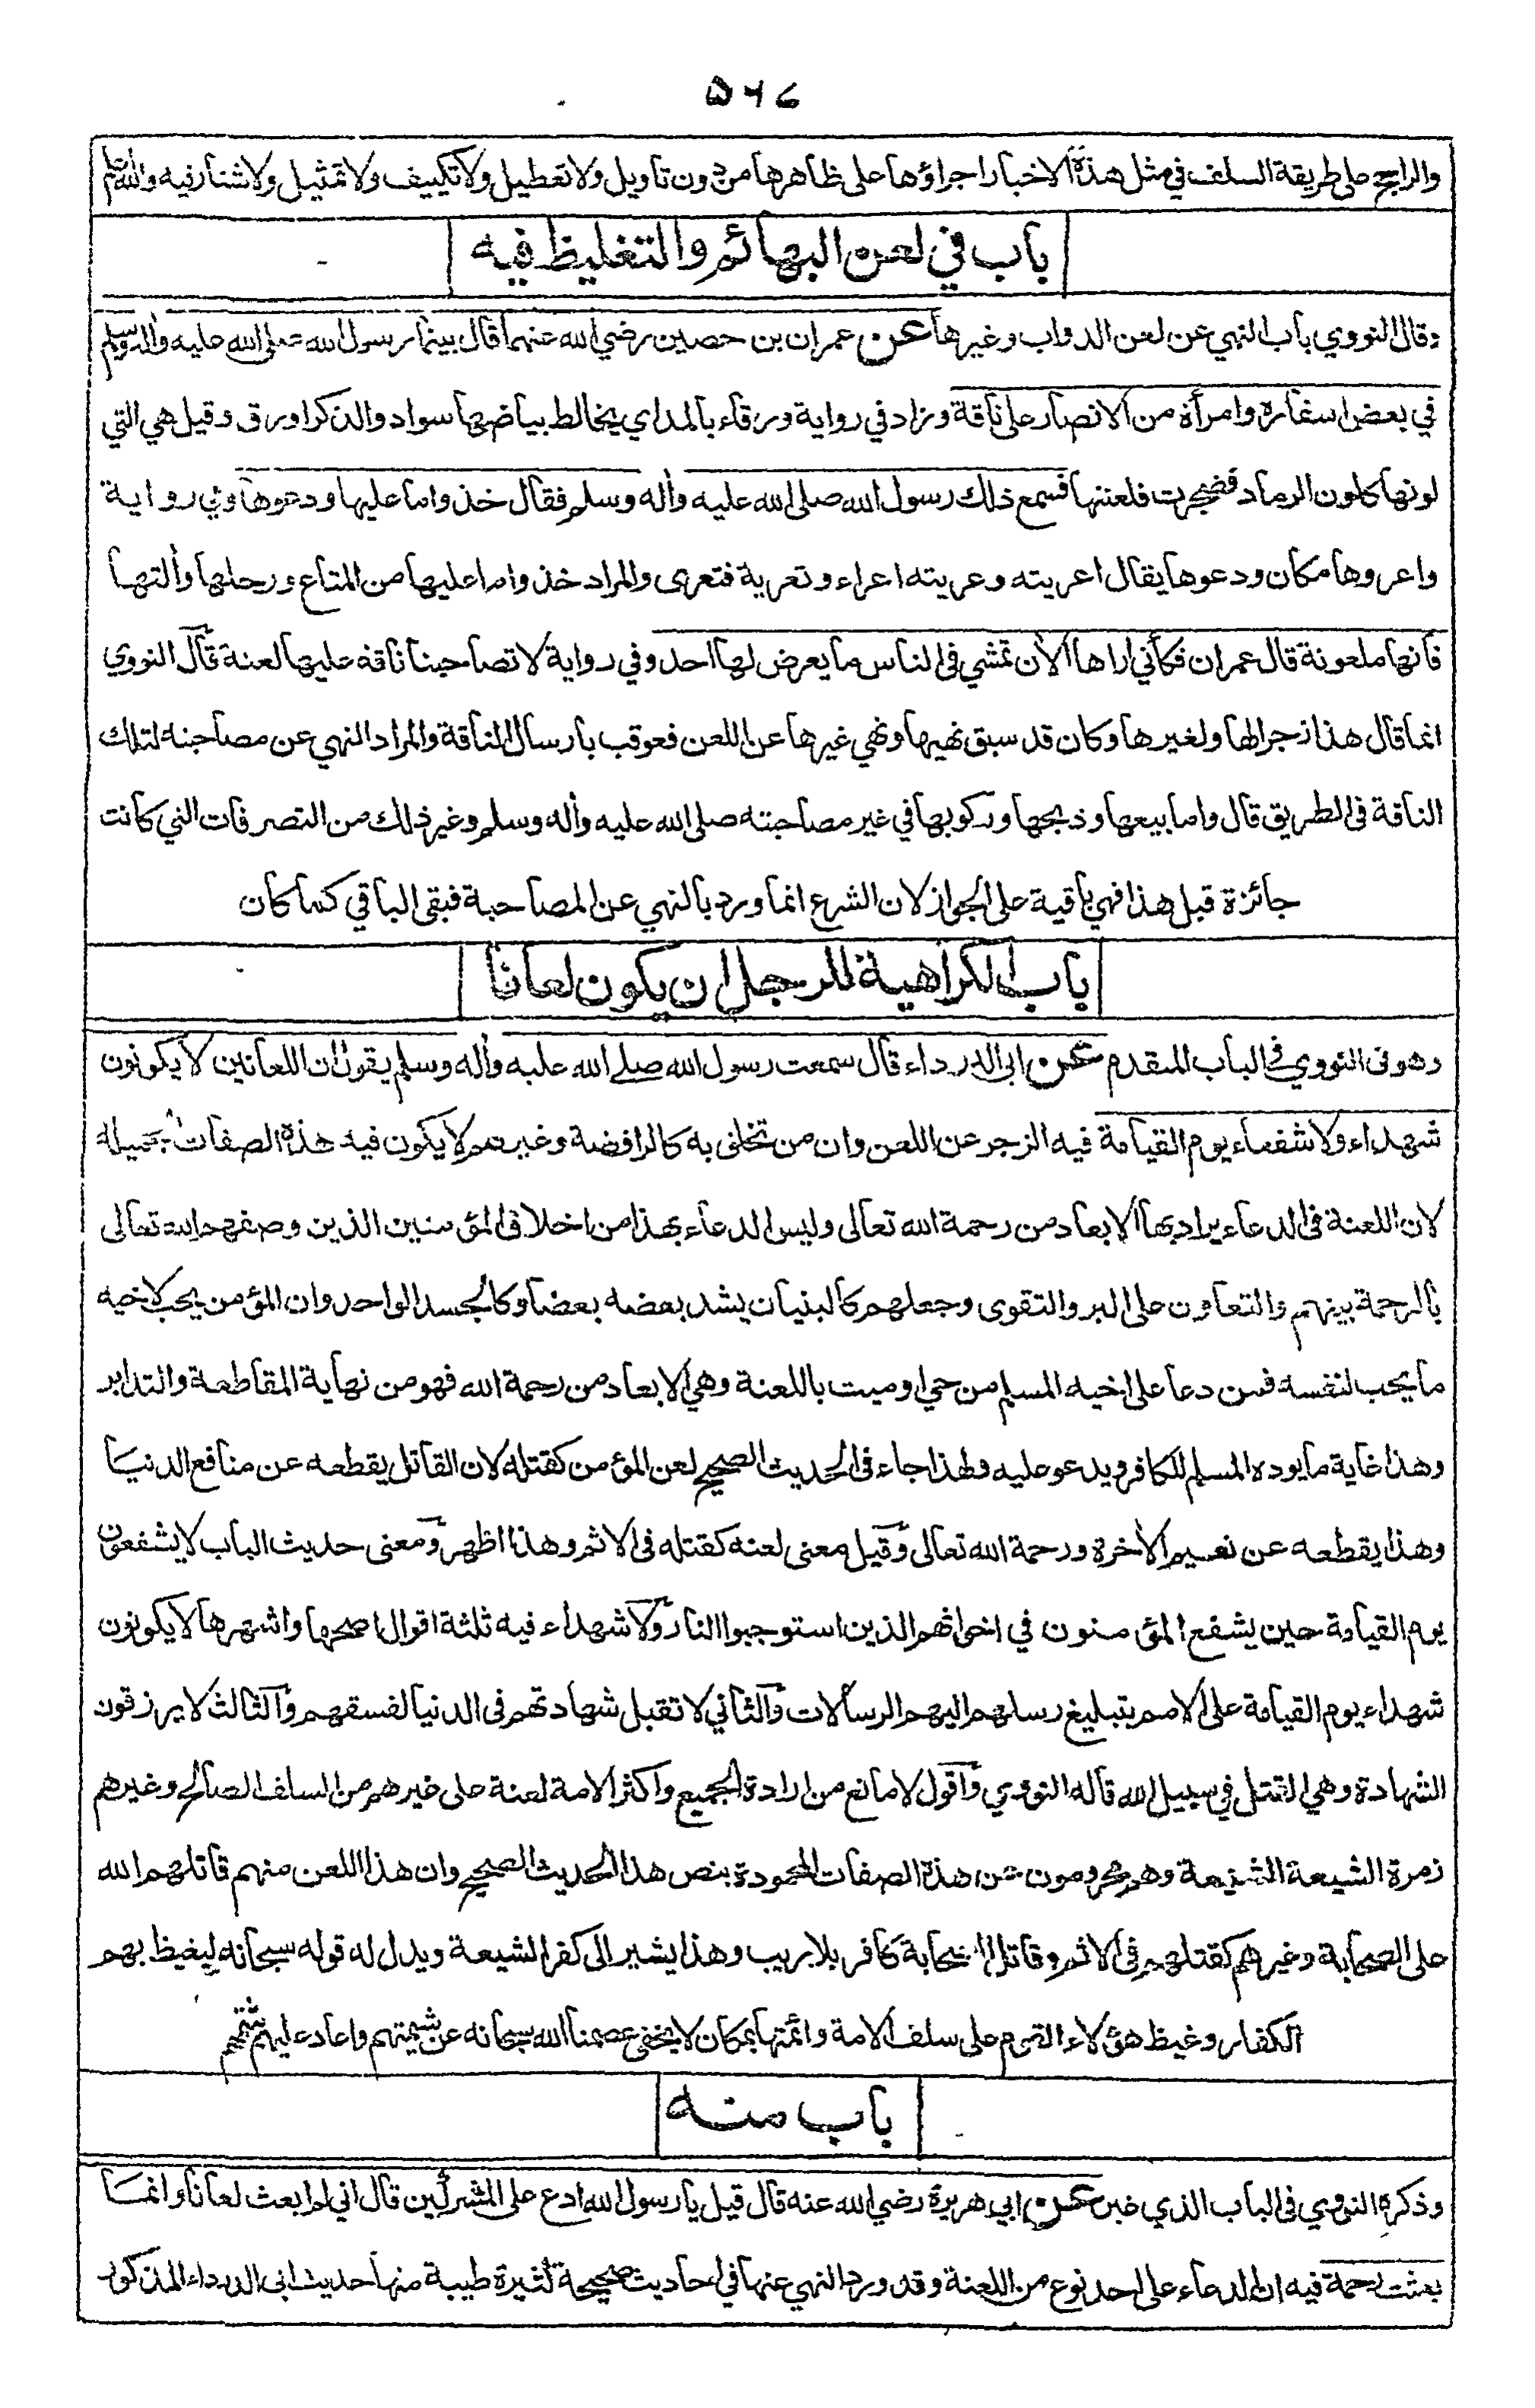 ٥٦٤
والراجح على طريقة السلف في مثل هذه الاخبار اجراؤها على ظاهرها من دون تاويل ولا تعطيل ولا تكييف ولا تمثيل ولا شنار فيه والله اعلم
باب في لعن البهائم والتغليظ فيه
وقال النووي باب النهي عن لعن الدواب وغيرها عن عمران بن حصين رضي الله عنهما قال بينما رسول الله صلى الله عليه واله وسلم
في بعض اسفاره وامرأة من الانصار على ناقة وزاد في رواية ورقاء بالمد اي يخالط بياضها سواد والذكر اورق وقيل هي التي
لونها كلون الرماد فضجرت فلعنتها فسمع ذلك رسول الله صلى الله عليه واله وسلم فقال خذوا ما عليها ودعوها وفي رواية
واعروها مكان ودعوها يقال اعريته وعريته اعراء وتعرية فتعرى والمراد خذوا ما عليها من المتاع ورحلها والتها
فانها ملعونة قال عمران فكأني اراها الأن تمشي في الناس ما يعرض لها احد وفي رواية لا تصاحبنا ناقة عليها لعنة قال النووي
انما قال هذا زجرا لها ولغيرها وكان قد سبق نهيها ونهي غيرها عن اللعن فعوقب بارسال الناقة والمراد النهي عن مصاحبته لتلك
الناقة في الطريق قال واما بيعها وذبحها وركوبها في غير مصاحبته صلى الله عليه واله وسلم وغير ذلك من التصرفات التي كانت
جائزة قبل هذا فهي باقية على الجواز لان الشرع انما ورد بالنهي عن المصاحبة فبقى الباقي كما كان
باب الكراهية للرجل ان يكون لعانا
وهو في النووي في الباب المتقدم عن ابي الدرداء قال سمعت رسول الله صلى الله عليه واله وسلم يقول ان اللعانين لا يكونون
شهداء ولا شفعاء يوم القيامة فيه الزجر عن اللعن وان من تخلق به كالرافضة وغيرهم لا يكون فيه هذه الصفات الجميلة
لان اللعنة في الدعاء يراد بها الابعاد من رحمة الله تعالى وليس الدعاء بهذا من اخلاق المؤمنين الذين وصفهم الله تعالى
بالرحمة بينهم والتعاون على البر والتقوى وجعلهم كالبنيان يشد بعضه بعضا وكالجسد الواحد وان المؤمن يحب لاخيه
ما يحب لنفسه فمن دعا على اخيه المسلم من حي او ميت باللعنة وهي الابعاد من رحمة الله فهو من نهاية المقاطعة والتدابر
وهذا غاية ما يوده المسلم للكافر ويدعو عليه ولهذا جاء في الحديث الصحيح لعن المؤمن كقتله لان القاتل يقطعه عن منافع الدنيا
وهذا يقطعه عن نعيم الأخرة ورحمة الله تعالى وقيل معنى لعنه كقتله في الاثم وهذا اظهر ومعنى حديث الباب لا يشفعون
يوم القيامة حين يشفع المؤمنون في اخوانهم الذين استوجبوا النار ولا شهداء فيه ثلثة اقوال اصحها واشهرها لا يكونون
شهداء يوم القيامة على الامم بتبليغ رسلهم اليهم الرسالات والثاني لا تقبل شهادتهم في الدنيا لفسقهم والثالث لا يرزقون
الشهادة وهي القتل في سبيل الله قاله النووي واقول لا مانع من ارادة الجميع واكثر الامة لعنة على خيرهم من السلف الصالح وغيرهم
زمرة الشيعة الشنيعة وهم محرومون عن هذه الصفات المحمودة بنص هذا الحديث الصحيح وان هذا اللعن منهم قاتلهم الله
على الصحابة وغيرهم كقتلهم في الاثم وقاتل الصحابة كافر بلا ريب وهذا يشير الى كفر الشيعة ويدل له قوله سبحانه ليغيظ بهم
الكفار وغيظ هؤلاء القوم على سلف الامة وائمتها بمكان لا يخفى عصمنا الله سبحانه عن شيمتهم واعاد عليهم
باب منه
وذكره النووي في الباب الذي غبر عن ابي هريرة رضي الله عنه قال قيل يا رسول الله ادع على المشركين قال اني لم ابعث لعانا وانما
بعثت رحمة فيه ان الدعاء على احد نوع من اللعنة وقد ورد النهي عنها في احاديث صحيحة كثيرة طيبة منها حديث ابي الدرداء المذكور